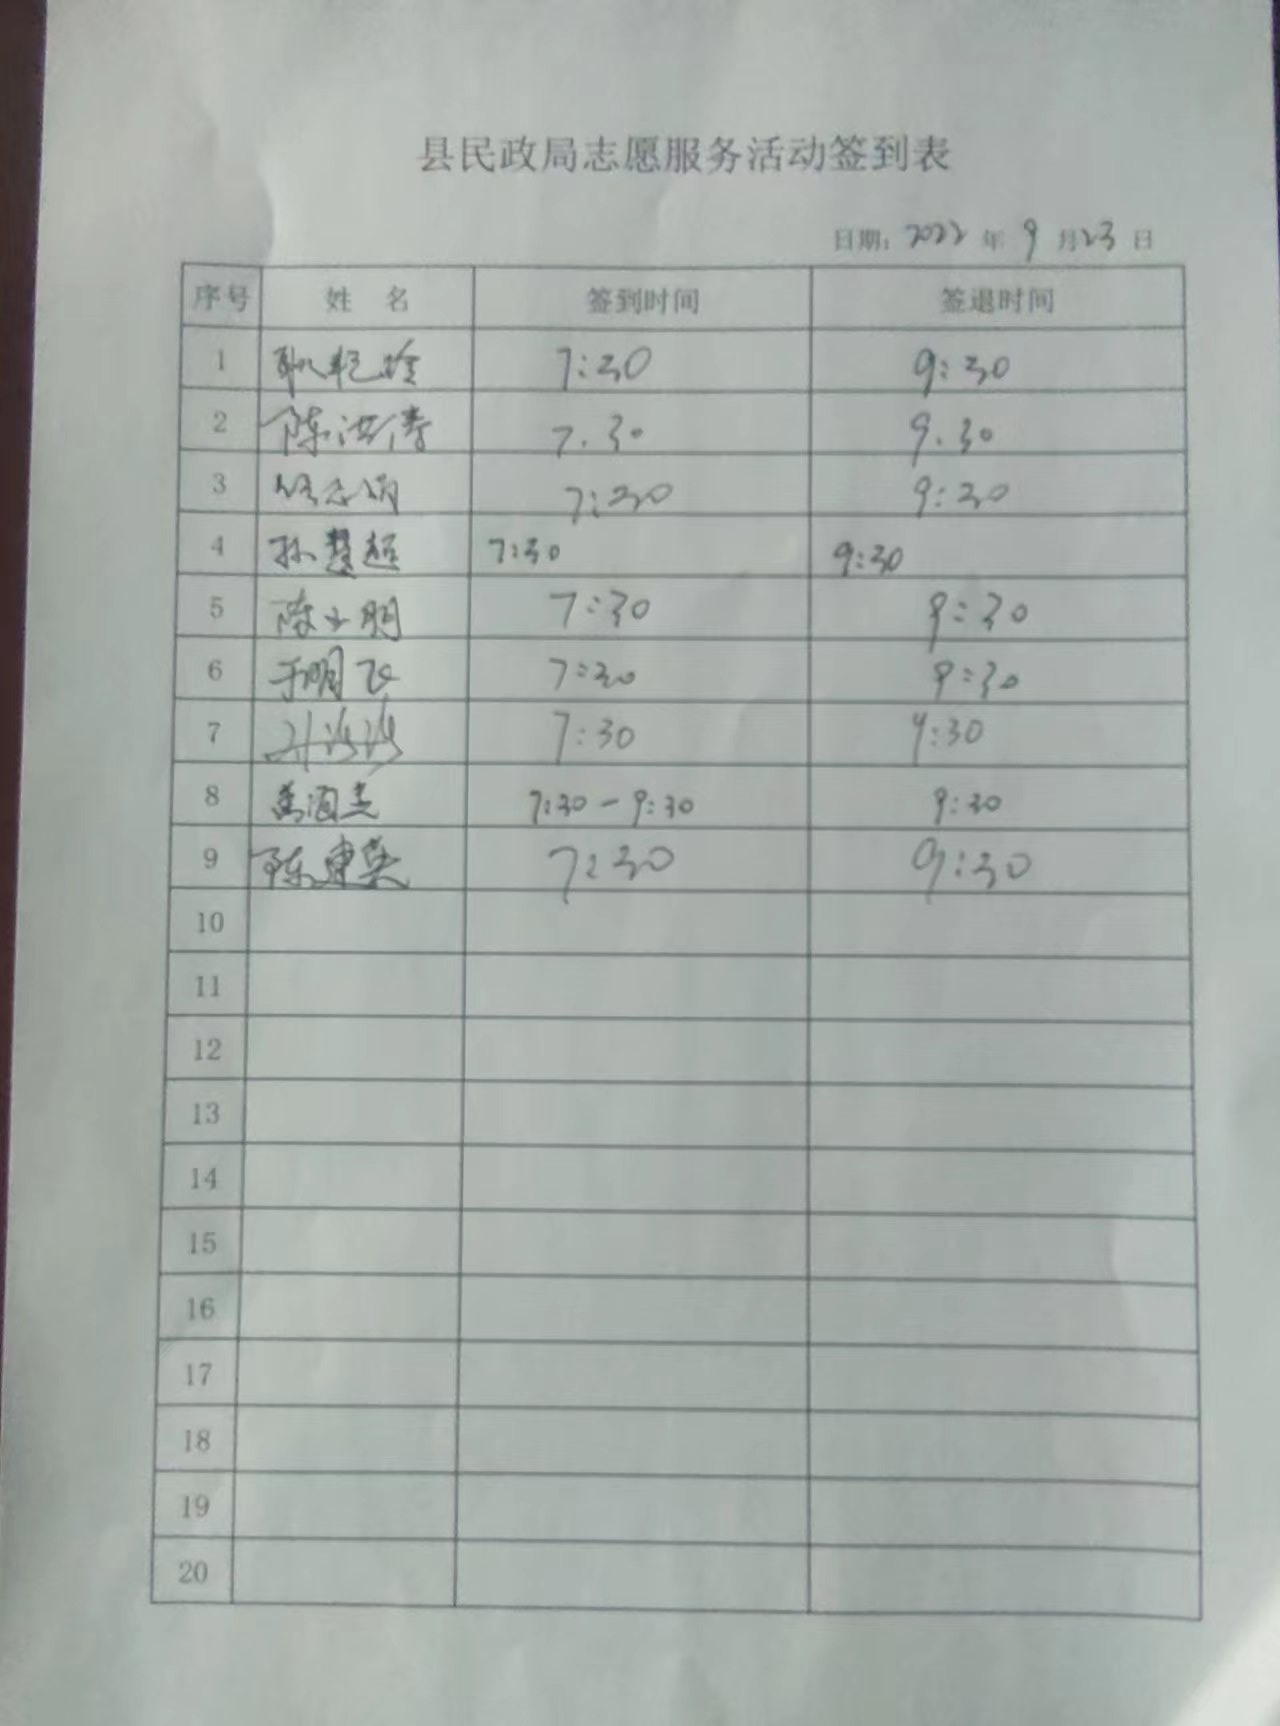 县民政局志愿服务活动签到表
日期: 2022 年 9 月 23 日
序号 姓 名 签到时间 签退时间
1 7:30 9:30
2 陈洪涛 7.30 9.30
3 7:30 9:30
4 孙慧超 7:30 9:30
5 陈小朋 7:30 9:30
6 于明飞 7:30 9:30
7 7:30 9:30
8 7:30-9:30 9:30
9 陈建英 7:30 9:30
10
11
12
13
14
15
16
17
18
19
20